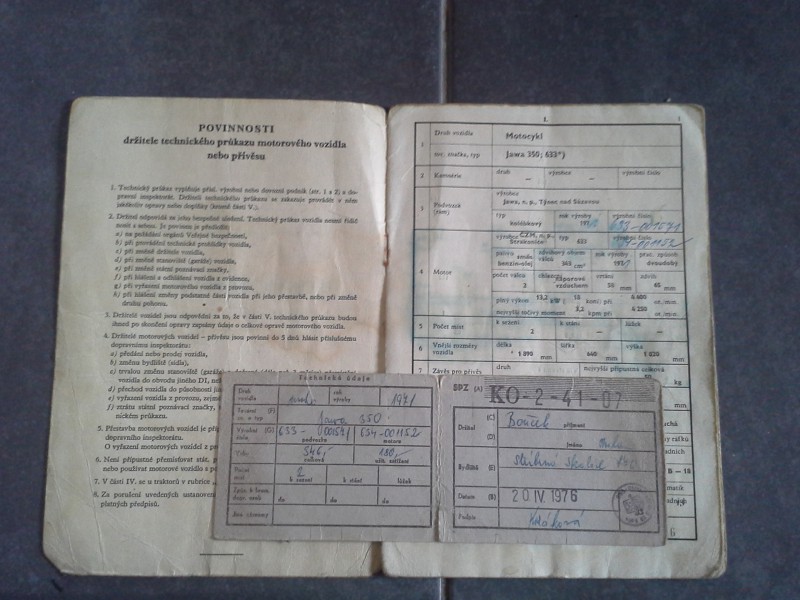 POVINNOSTI
držitele technického průkazu motorového vozidla
nebo přívěsu
1. Technický průkaz vyplňuje příslušný výrobní nebo dovozní podnik (str. 1 a 2) a do-
pravní inspektorát. Držiteli technického průkazu se zakazuje provádět v něm
jakékoliv opravy nebo doplňky (kromě části V.).
2. Držitel odpovídá za jeho bezpečné uložení. Technický průkaz vozidla nesmí řidič
nosit s sebou. Je povinen jej předložit:
a) na požádání orgánů Veřejné bezpečnosti,
b) při provádění technické prohlídky vozidla,
c) při změně držitele vozidla,
d) při změně stanoviště (garáže) vozidla,
e) při změně státní poznávací značky,
f) při hlášení a odhlášení vozidla z evidence,
g) při vyřazení motorového vozidla z provozu,
h) při hlášení změny podstatné části vozidla při jeho přestavbě, nebo při změně
druhu pohonu.
3. Držitel vozidel jsou odpovědni za to, že v části V. technického průkazu budou
ihned po skončení opravy zapsány údaje o celkové opravě motorového vozidla.
4. Držitelé motorových vozidel – přívěsů jsou povinni do 5 dnů hlásit příslušnému
dopravnímu inspektorátu:
a) předání nebo prodej vozidla,
b) změnu bydliště (sídla),
c) trvalou změnu stanoviště (garáže)
vozidla do obvodu jiného DI,
d) přechod vozidla do působnosti
e) vyřazení vozidla z provozu,
f) ztrátu státní poznávací značky,
nickém průkazu.
5. Přestavba motorových vozidel je
dopravního inspektorátu.
O vyřazení motorových vozidel z
6. Není přípustné přemisťovat stát.
nebo používat motorové vozidlo z
7. V části IV. se u traktorů v rubrice
8. Za porušení uvedených ustanovení
platných předpisů.
I.
1 Druh vozidla Motocykl
tov. značka, typ Jawa 350; 633*)
2 Karoserie druh – výrobce – výrobní číslo –
3 Podvozek (rám) výrobce
Jawa, n. p., Týnec nad Sázavou
typ kolébkový rok výroby 1971 výrobní číslo 633-001571
4 Motor výrobce ČZM, n. p., Strakonice typ 633 výrobní číslo
palivo směs benzin-olej zdvihový objem válců 345 cm³ rok výroby 1971 prac. způsob dvoudobý
počet válců 2 chlazení náporové vzduchem vrtání 58 mm zdvih 65 mm
plný výkon 13,2 18 koní; při 4 600 ot./min
nejvyšší točivý moment 3,2 kpm při 4 250 ot./min
5 Počet míst k sezení 2 k stání – lůžek –
6 Vnější rozměry vozidla délka 1 890 mm šířka 640 mm výška 1 020 mm
7 Závěs pro přívěs druh nejvyšší přípustná celková
kg
Technické údaje
Druh vozidla rok výroby 1971
Tovární zn. a typ (F) Jawa 350
Výrobní číslo (G) 633-001571 podvozku 634-001152 motoru
Váha 346,- celková 180,- užit. zatížení
Počet míst 2 k sezení k stání lůžek
do do do
SPZ (A) KO-2-41-07
Držitel (C) Bouček příjmení
(D) jméno
Bydliště (E)
Datum (B) 20 IV 1976
Podpis